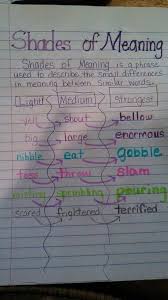 Shades of Meaning
Shades of Meaning is a phrase
used to describe the small differences
in meaning between similar words.
Light Medium strongest
yell shout bellow
big large enormous
nibble eat gobble
toss throw slam
misting sprinkling pouring
scared frightened terrified